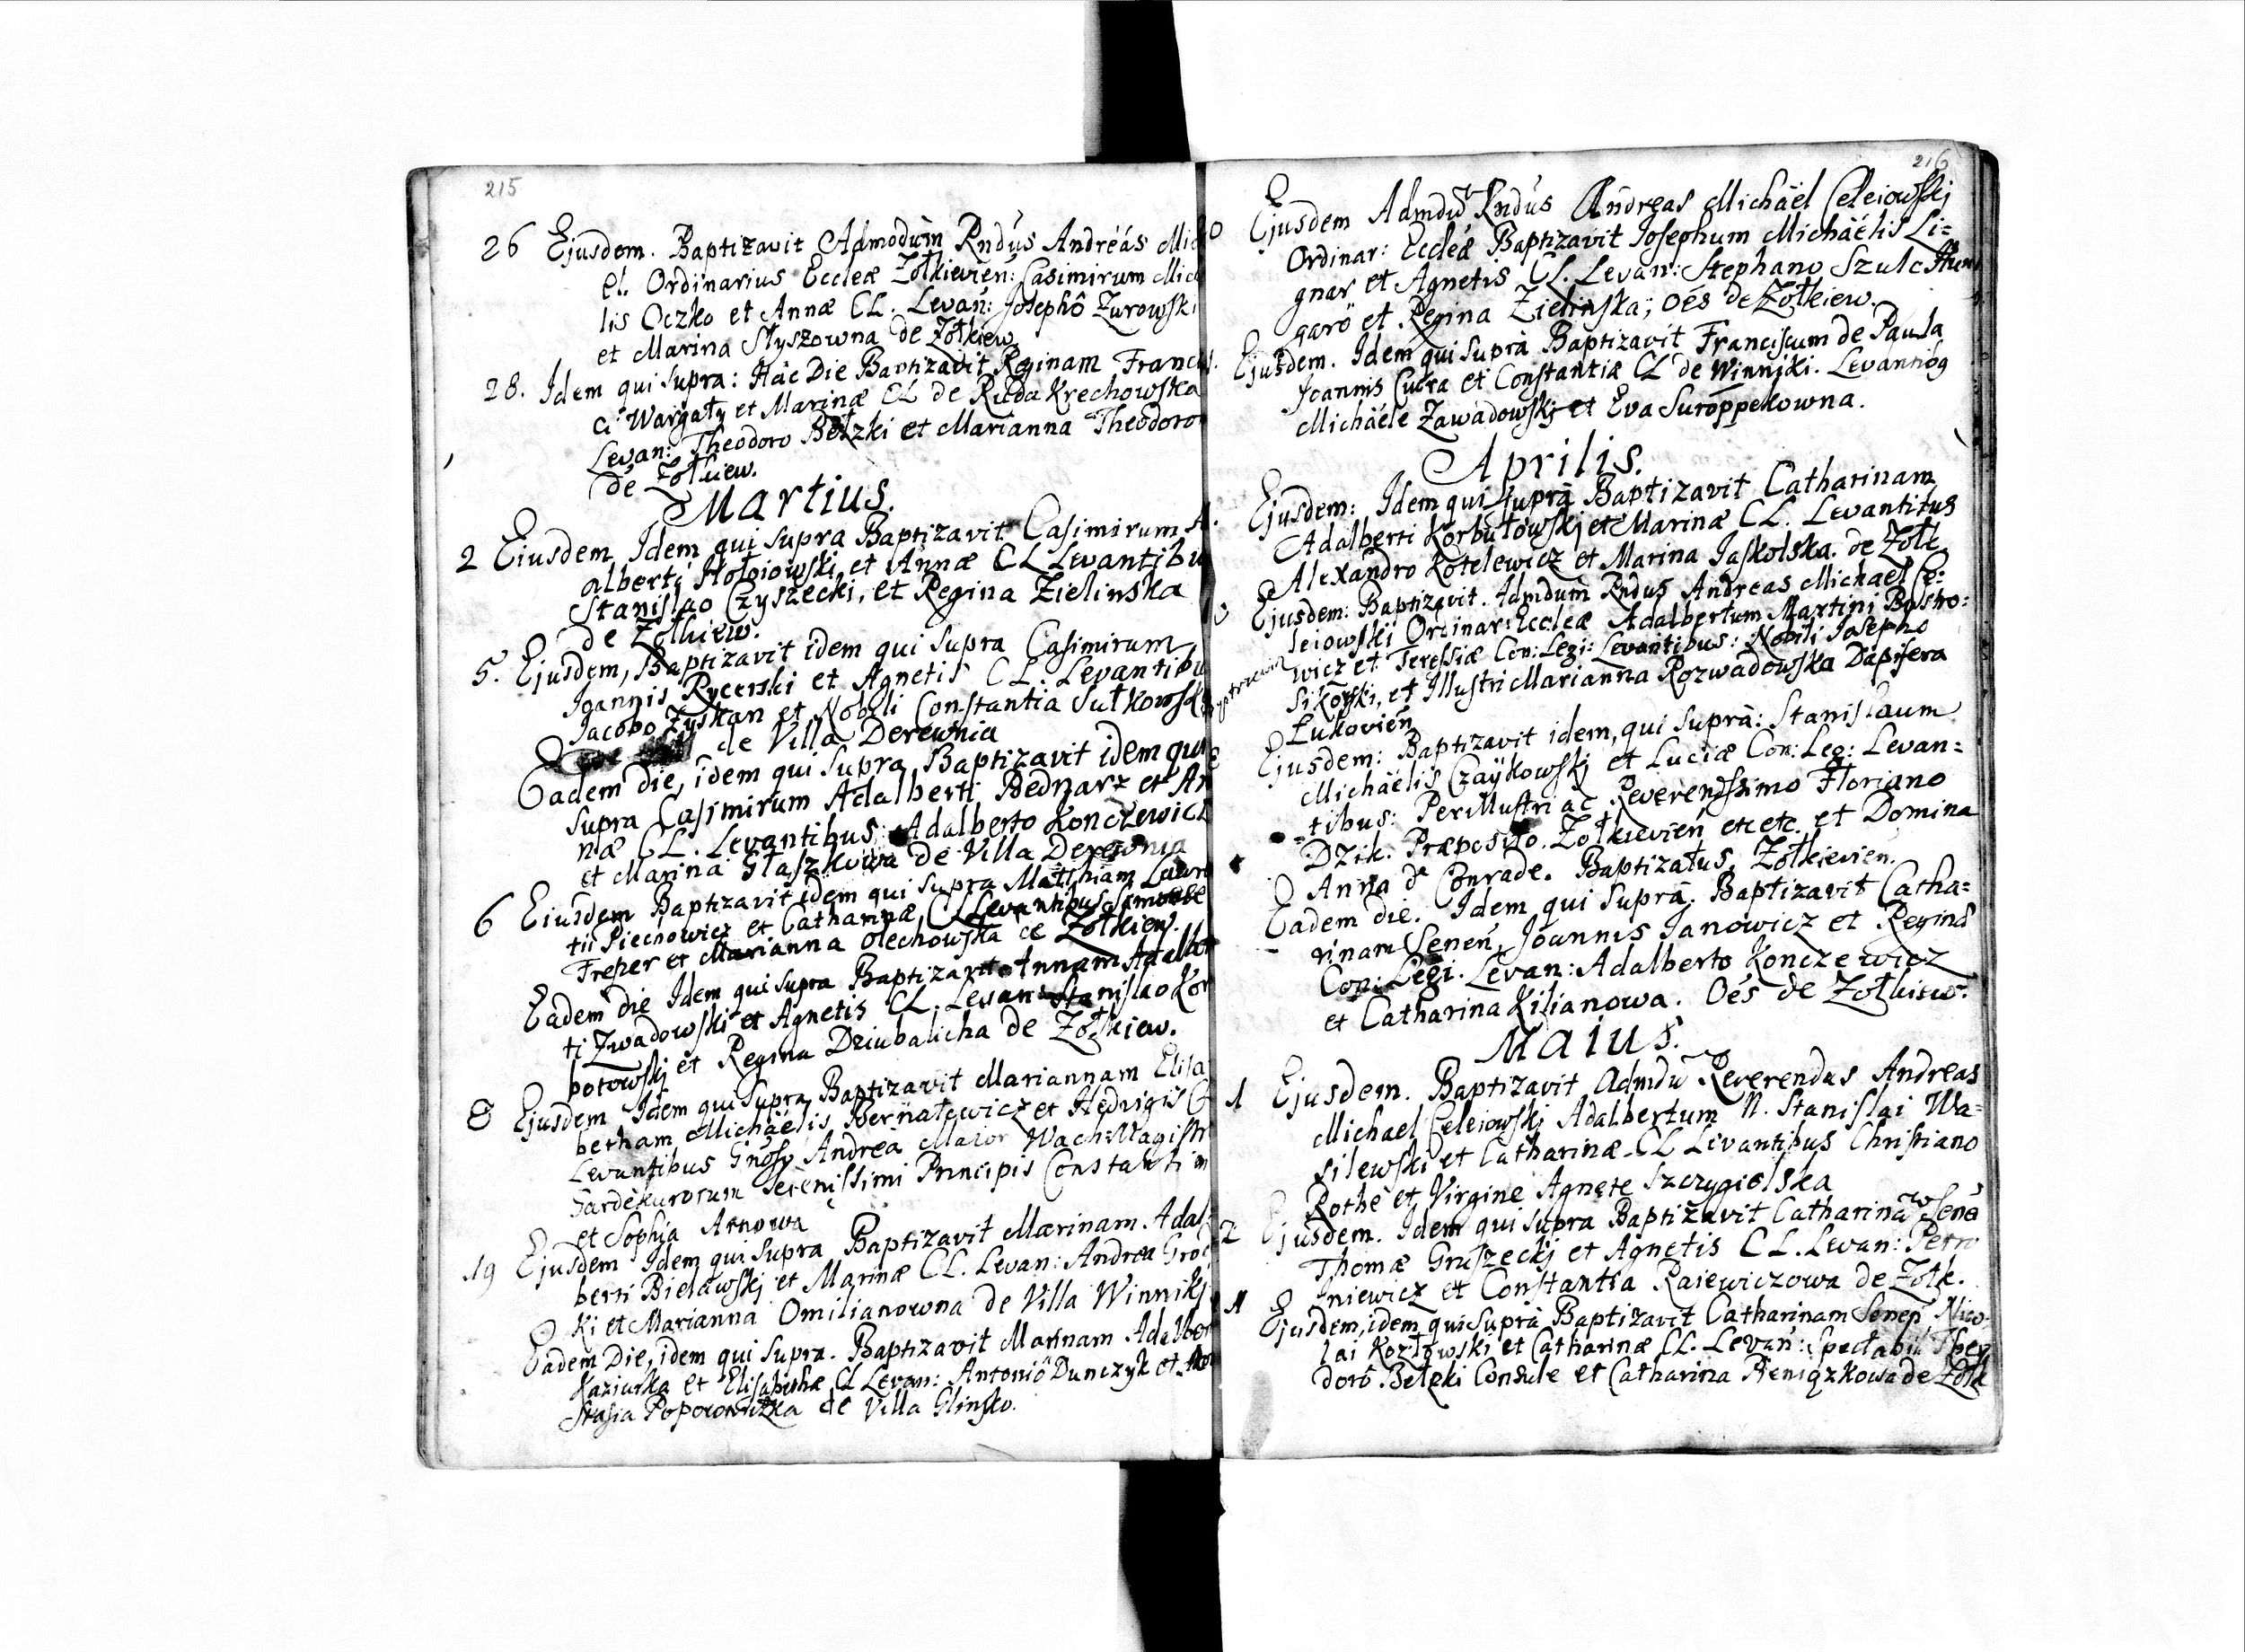 215
26 Ejusdem. Baptizavit Admodum Rndus Andreas Mic
el. Ordinarius Eccleæ Zołkievien: Casimirum Mic
lis Oczko et Annæ CL. Levan: Josephô Zurowski
et Marina Słyszowna de Zołkiew
28. Idem qui supra: Hac Die Baptizavit Reginam Franc
ci Wargały et Marinæ CL de Ruda Krechowska
Levan: Theodoro Bełzki et Marianna Theodoro
de Zołkiew.
Martius.
2 Eiusdem Idem qui supra Baptizavit Casimirum A
alberti Hołoiowski et Annæ CL Levantibu
Stanislao Czyszecki, et Regina Zielinska
de Zołkiew.
5. Ejusdem, Baptizavit idem qui supra Casimirum
Joannis Rycerski et Agnetis CL. Levantibu
Jacobo Zyskan et Nobili Constantia Sułkowsk
de Villa Derewnia
Eadem die, idem qui supra Baptizavit idem qui
supra Casimirum Adalberti Bednarz et An
næ CL. Levantibus: Adalberto Konczewicz
et Marina Głaszkowa de Villa Derewnia
6 Eiusdem Baptizavit idem qui supra Matthiam Laure
tii Piechowicz et Catharinæ CL Levantibus Samuele
Freher et Marianna Olechowska de Zołkiew.
Eadem die Idem qui supra Baptizavit Annam Adalber
ti Zwadowski et Agnetis CL. Levan: Stanislao Kor
botowskj et Regina Dziubalicha de Zołkiew.
8 Ejusdem Idem qui supra Baptizavit Mariannam Elisa
betham Michäelis Bernatowicz et Hedvigis C
Levantibus Gnoso Andrea Maior Wach: Magistr
Gardekurorum Serenissimi Principis Constantin
et Sophja Arnowa
19 Ejusdem Idem qui supra Baptizavit Marinam Adal
berti Bielawskj et Marinæ CL. Levan: Andrea Groc
ki et Marianna Omilianowna de Villa Winnikj
Eadem Die, idem qui supra. Baptizavit Marinam Adalber
Kaziurka et Elisabethæ CL Levan: Antoniô Dunczyk et
stasia Popowiczka de Villa Glinsko.
216
Ejusdem Admdu Rndus Andreas Michäel Celeiowskj
Ordinar: Eccleæ Baptizavit Josephum Michäelis Li=
gnar et Agnetis CL. Levan: Stephano Szulc
garö et Regina Zielinska; Oés de Zołkiew.
Ejusdem. Idem qui supra Baptizavit Franciscum de Paula
Joannis Cucra et Constantiæ CL de Winnjki. Levantiög
Michäele Zawadowskj et Eva Suroppekowna.
Aprilis.
Ejusdem: Idem qui supra Baptizavit Catharinam
Adalberti Korbułowskj et Marinæ CL. Levantibus
Alexandro Kotelewicz et Marina Jaskolska. de Zołk
Ejusdem: Baptizavit. Admdum Rndus Andreas Michael Ce:
leiowski Ordinar: Eccleæ Adalbertum Martini Bystro:
wicz et Teressiæ Con: Legi: Levantibus: Nobili Josepho
Sikorski, et Illustri Marianna Rozwadowska Dapifera
Łukovien
Ejusdem: Baptizavit idem, qui supra: Stanislaum
Michäelis Czaykowskj et Luciæ Con: Leg: Levan=
tibus: Perillustri ac Reverendssimo Floriano
Dzik. Præposito. Zołkievien etc etc. et Domina
Anna de Conrade. Baptizatus, Zołkievien.
Eadem die. Idem qui supra, Baptizavit Catha=
rinam Senen, Joannis Janowicz et Reginæ
Con: Legi. Levan: Adalberto Konczewicz
et Catharina Kilianowa. Oés de Zołkiew.
Maius.
1 Ejusdem. Baptizavit Admdu Reverendus Andreas
Michael Celeiowskj Adalbertum N. Stanislai Wa=
silewski et Catharinæ CL Levantibus Christiano
Rothe et Virgine Agnete Szczygielska
2 Ejusdem. Idem qui supra Baptizavit Catharina Sene
Thomæ Gruszeckj et Agnetis CL. Levan: Petro
niewicz et Constantia Raiewiczowa de Zołk.
11 Ejusdem, idem qui supra Baptizavit Catharinam Senen Nico
lai Kozłowski et Catharinæ CL. Levan: Spectabili Theo
doro Bełzki Consule et Catharina Beniązkowa de Zołk